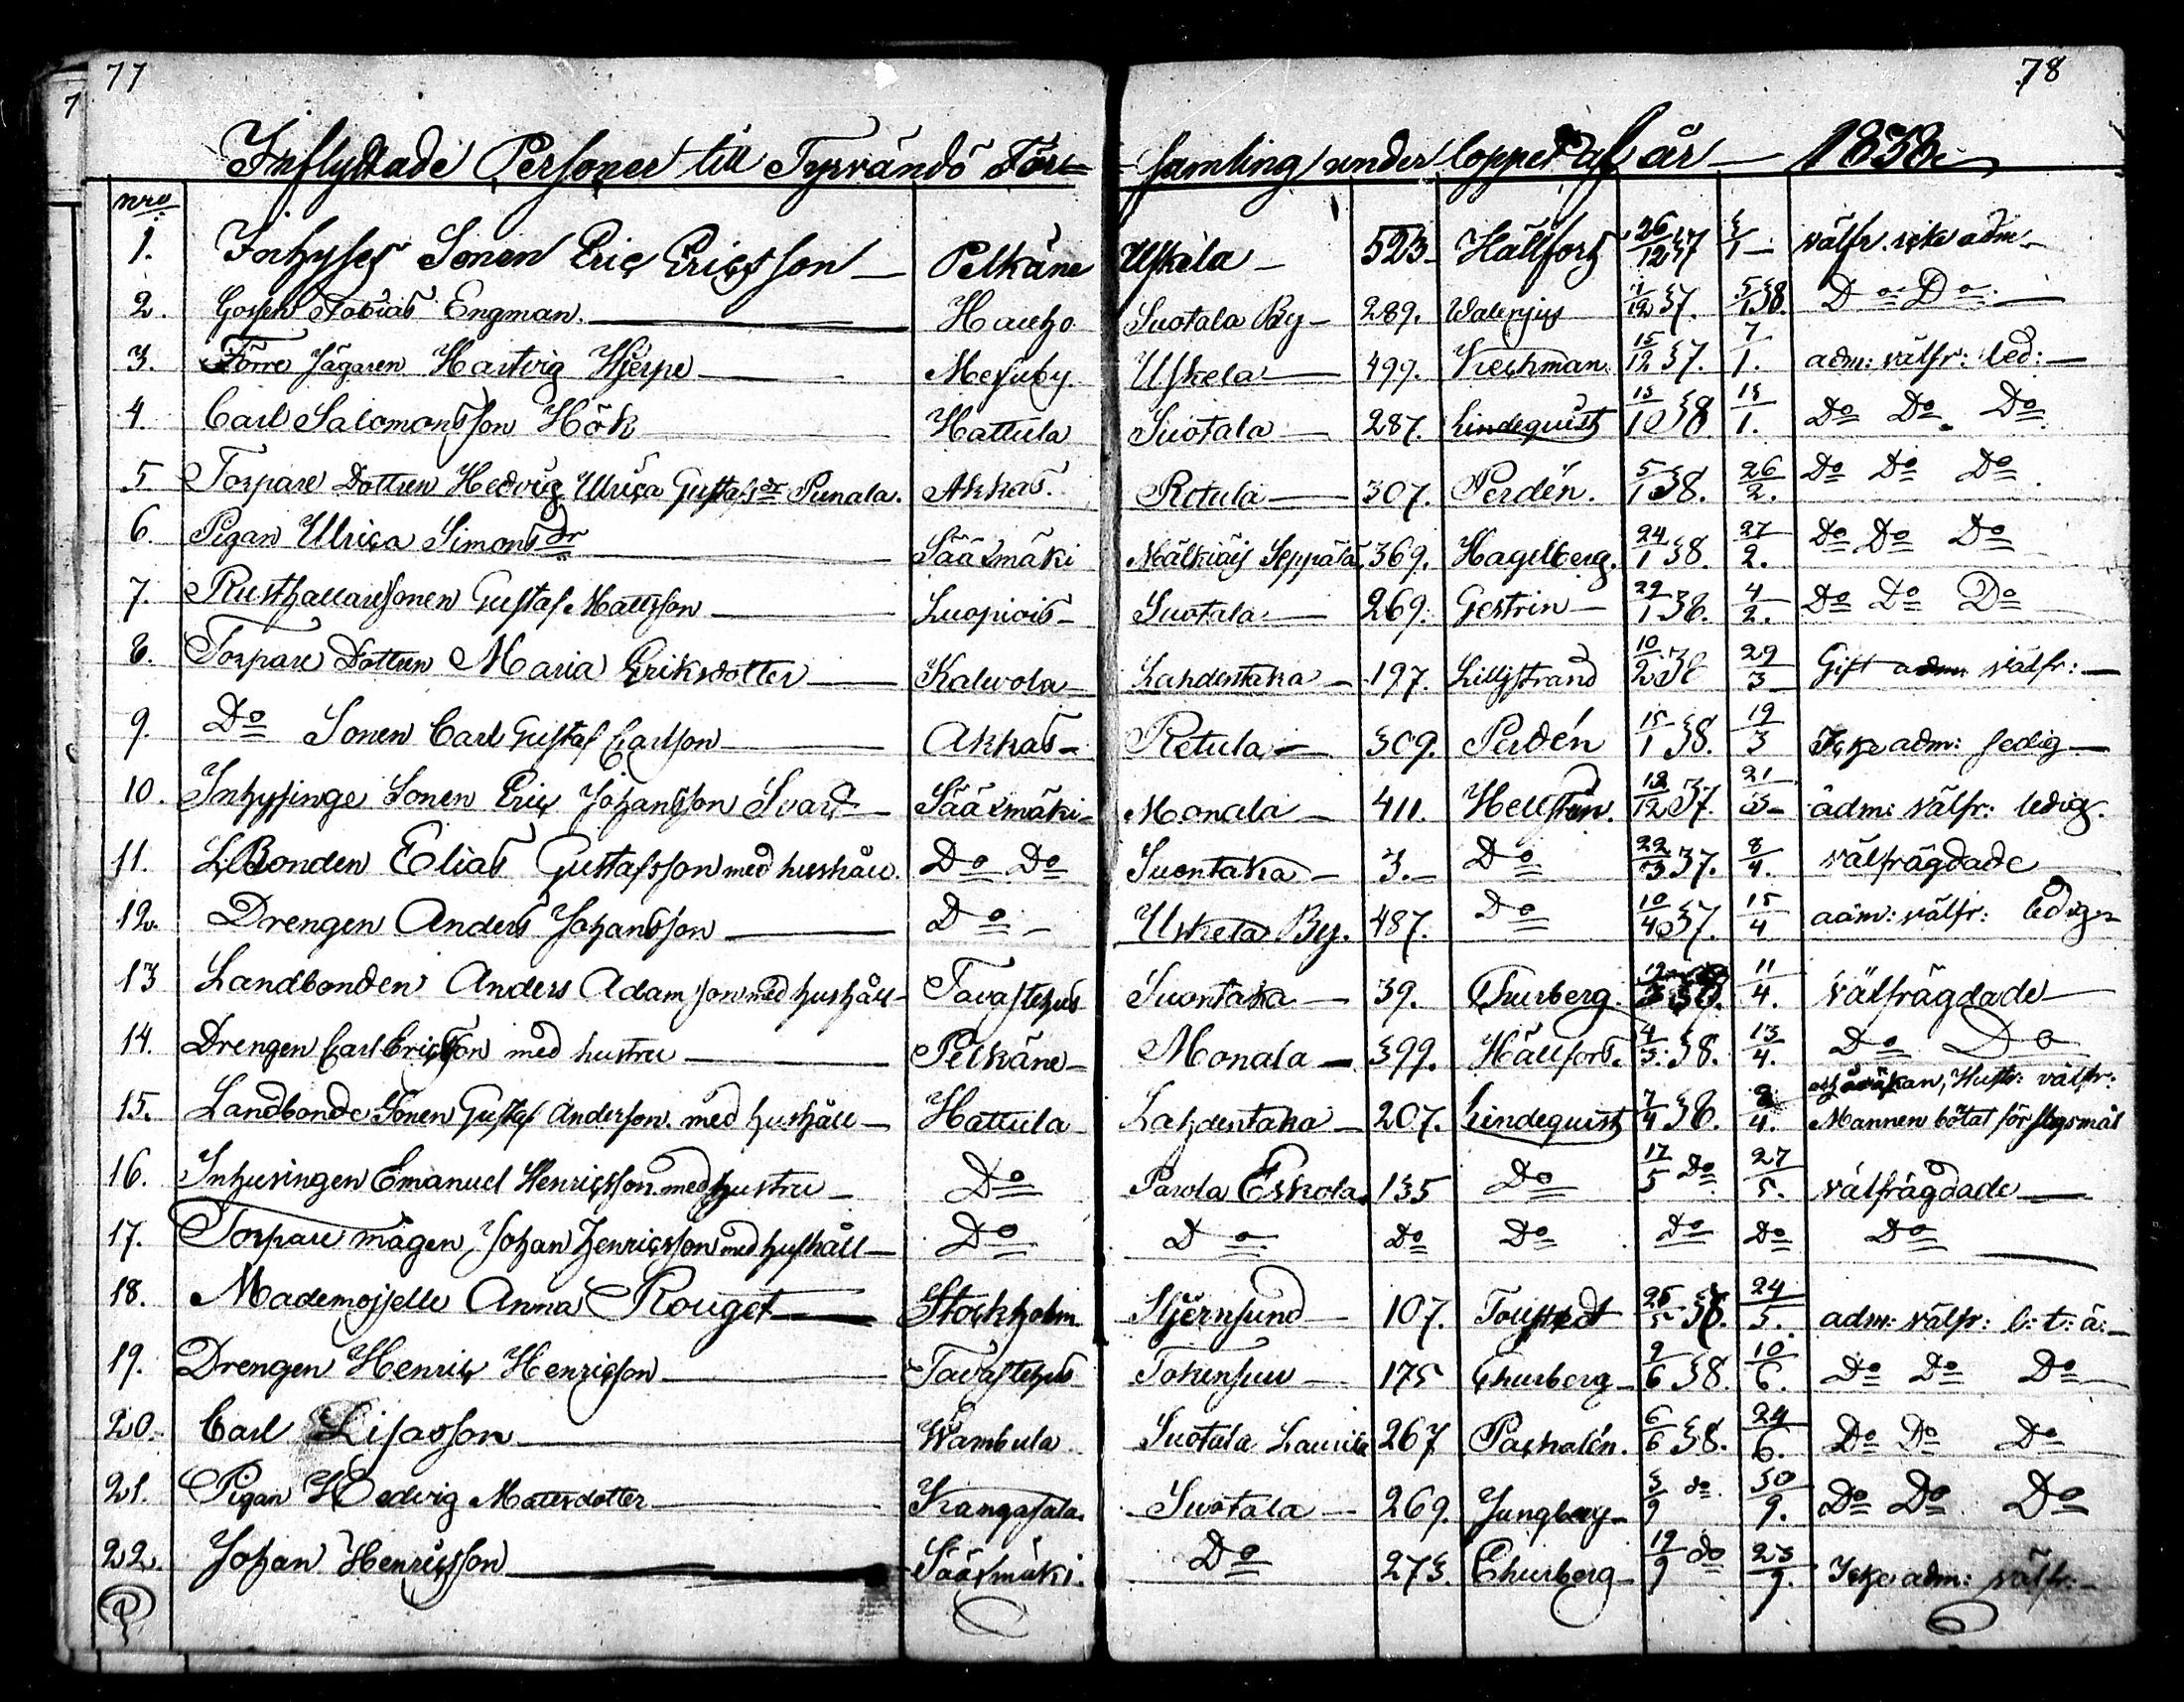 77
78
Inflyttade Personer till Tyrvändö För= samling under loppet af år 1838.
nro
1. Inhyses Sonen Eric Ericsson Pelkäne Uskela 523 Hällfors 26/12 37 3/1 välfr. icke adm.
2. Gossen Tobias Engman. Hauho Suotala By 289. Walenius 1/12 37. 5/1 38. Do Do
3. Förre Jägaren Hartvig Hjerpe Mesuby Uskela 499. Keckman. 15/12 37. 7/1. adm: välfr: led:
4. Carl Salomonsson Hök Hattula Suotala 287. Lindequist 13/10 38. 13/1. Do Do Do
5. Torpare Dottren Hedvig Ulrica Gustafsdr Punala. Akkas. Retula 307. Perdén. 5/1 38. 26/2. Do Do Do
6. Pigan Ulrica Simonsdr Sääxmäki Mälkiäis Seppälä 369. Hagelberg. 24/1 38. 27/2. Do Do Do
7. Rusthållaresonen Gustaf Mattsson Luopiois Suotala 269. Gestrin 22/1 38. 4/2. Do Do Do
8. Torpare Dottren Maria Eriksdotter Kalvola Lahdentaka 197. Liljestrand 10/2 38 29/3 Gift adm. välfr:
9. Do Sonen Carl Gustaf Carlson Akkas Retula 309. Perdén 15/1 38. 19/3 Icke adm: ledig
10. Inhysinge Sonen Eric Johansson Svart Sääxmäki Monala 411. Hellstén. 12/12 37. 21/3 adm: välfr: ledig.
11. L.Bonden Elias Gustafsson med hushåll. Do Do Suontaka 3. Do 22/3 37. 8/4. välfrägdade
12. Drengen Anders Johansson Do Uskela By. 487. Do 10/4 37. 15/4 adm: välfr: ledig
13 Landbonden Anders Adamsson med hushåll Tavastehus Suontaka 39. Churberg. 38. 11/4. välfrägdade
14. Drengen Carl Ericsson med hustru Pelkäne Monala 399. Hällfors. 4/3. 38. 13/4. Do Do
15. Landbonde Sonen Gustaf Anderson. med hushåll Hattula Lahdentaka 207. Lindequist 7/4 38. 4. Hustr: välfr: Mannen bötat för slagsmål
16. Inhusingen Emanuel Henricsson med hustru Do Parola Eskola. 135 Do 17/5 Do 27/5. välfrägdade
17. Torpare mågen, Johan Henricsson med hushåll Do Do Do Do Do Do Do
18. Mademoiselle Anna Rouget Stockholm Stjernsund 107. 25/5 38. 24/5. adm: välfr: l: t: ä:
19. Drengen Henric Henricson Tavastehus Tokensuu 175 Churberg 9/6 38. 10/6. Do Do Do
20. Carl Lisasson Wambula Suotala Laurila 267 Packalén. 6/6 38. 24/6. Do Do Do
21. Pigan Hedvig Mattsdotter Kangasala. Suotala 269. Jungberg 3/9 do. 30/9. Do Do Do
22. Johan Henricsson Sääxmäki. Do 273. Churberg 19/9 do 23/9. Icke adm: välfr: